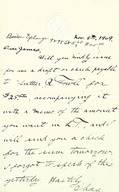 Nov. 8th, 1909.
Dear James,
Will you kindly make
for me a draft or check payable
to "Luther R.
for
$25.00 accompanying it
with a memo of the amount
you want in
and I
will send you a check
for the same tomorrow.
I forgot to speak of this
yesterday. Hastily,
Chas